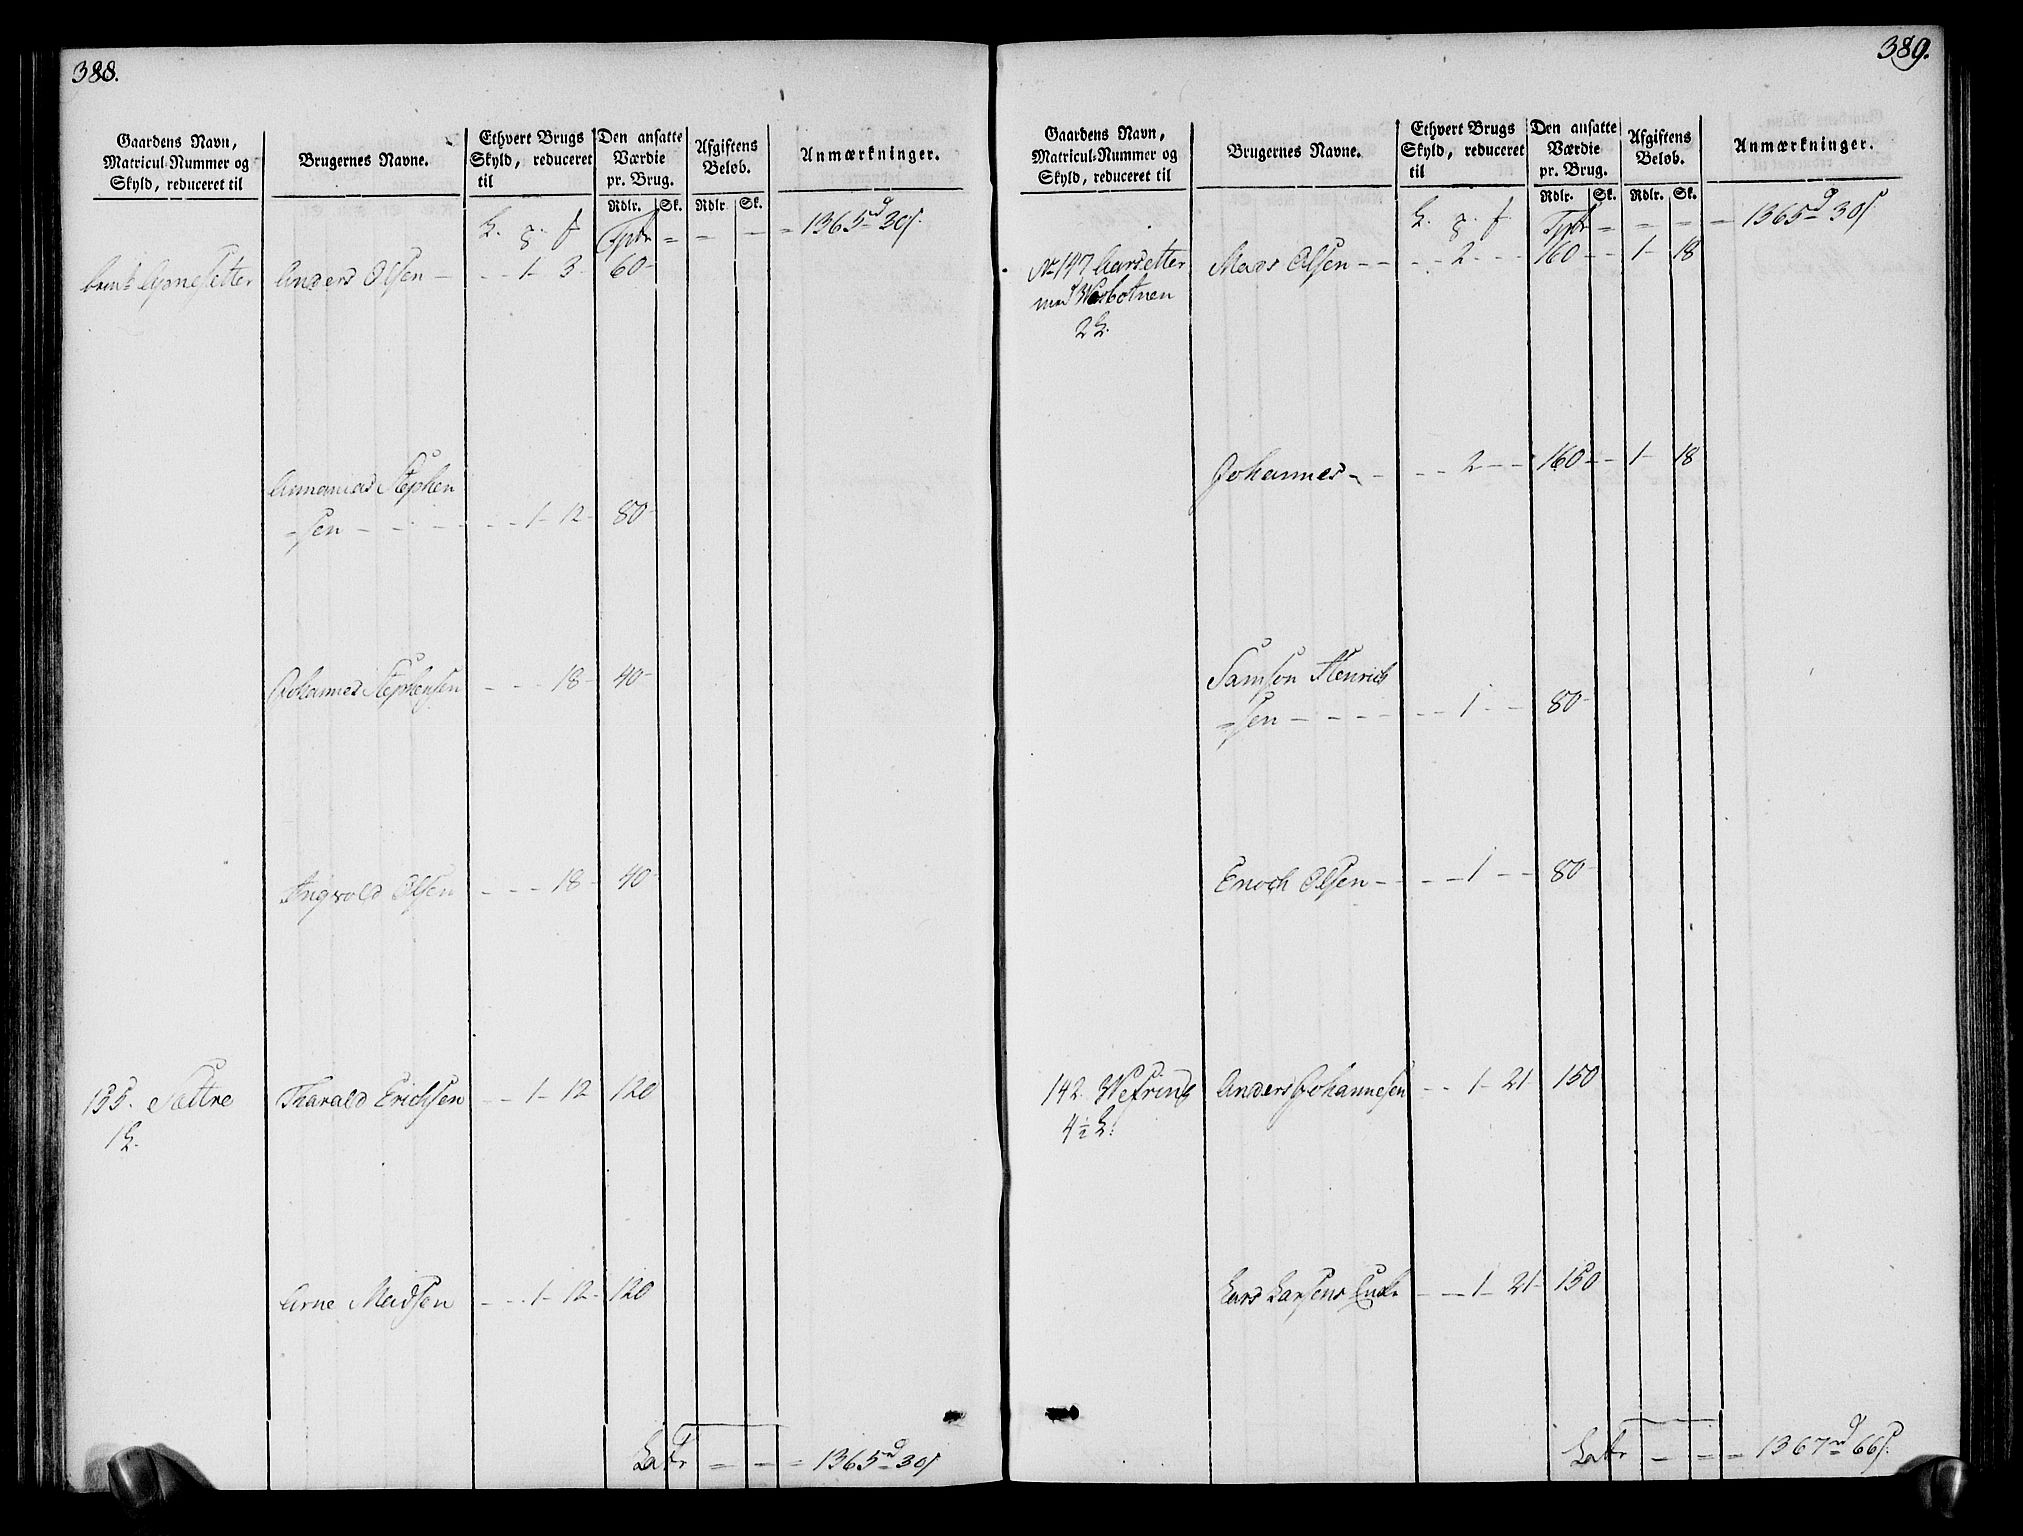 388.
Gaardens Navn,
Matricul-Nummer og
Skyld, reduceret til
Brugernes Navne.
Ethvert Brugs
Skyld, reduceret
til
Den ansatte
Værdie
pr. Brug.
Rdlr. Sk.
Afgiftens
Beløb.
Rdlr. Sk.
Anmærkninger.
Tptr = - - = 1365 d 30 s.
Anders Olsen - - - 1 - 3 - 60 -
Ananias Stephen
=sen - - - - - 1 - 12 - 80 -
Johannes Stephensen - - - 18 - 40 -
Ingvold Olsen - - - 18 - 40 -
155. Sættre Harald Erichsen - - 1 - 12 120
1 L.
Arne Madsen - - 1 - 12 - 120
Latr = - = 1365 d 30 s
389.
Gaardens Navn,
Matricul-Nummer og
Skyld, reduceret til
Brugernes Navne.
Ethvert Brugs
Skyld, reduceret
til
Den ansatte
Værdie
pr. Brug.
Rdlr. Sk.
Afgiftens
Beløb.
Rdlr. Sk.
Anmærkninger.
Tptr = - - - = 1365 d 30 s.
No 147 Aarsetter Mads Olsen - - - - 2 - - - 160 - - 1 - 18
med
2 L.
Johannes - - - - 2 - - - 160 - - 1 - 18
Samson Henrich
=sen - - - - - - 1 - - 80 -
Enoch Olsen - - - - 1 - - 80 -
142. Wefring Anders Johannesen - - 1 - 21 - 150
4 1/2 L:
Lars Larsens Enke - - 1 - 21 - 150
Latr - = = 1367 d 66 s.